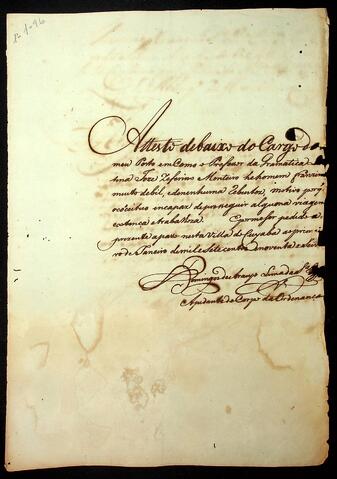 Attesto debaixo do Cargo do
meu Posto em Como o Professor da Gramatica
tina Joze Zeferino Monteiro he homem
muito debil, e de nenhuma Robustez, motivo por q
o incapaz de proseguir alguma viagem
extença e trabalhoza. E por me ser pedida a
prezente a paSei nesta Villa do Cuyabá ao primei
ro de Janeiro de mil e Sete centos e noventa e
Domingos de Araujo Lima
Ajudante do Corpo da Ordenança